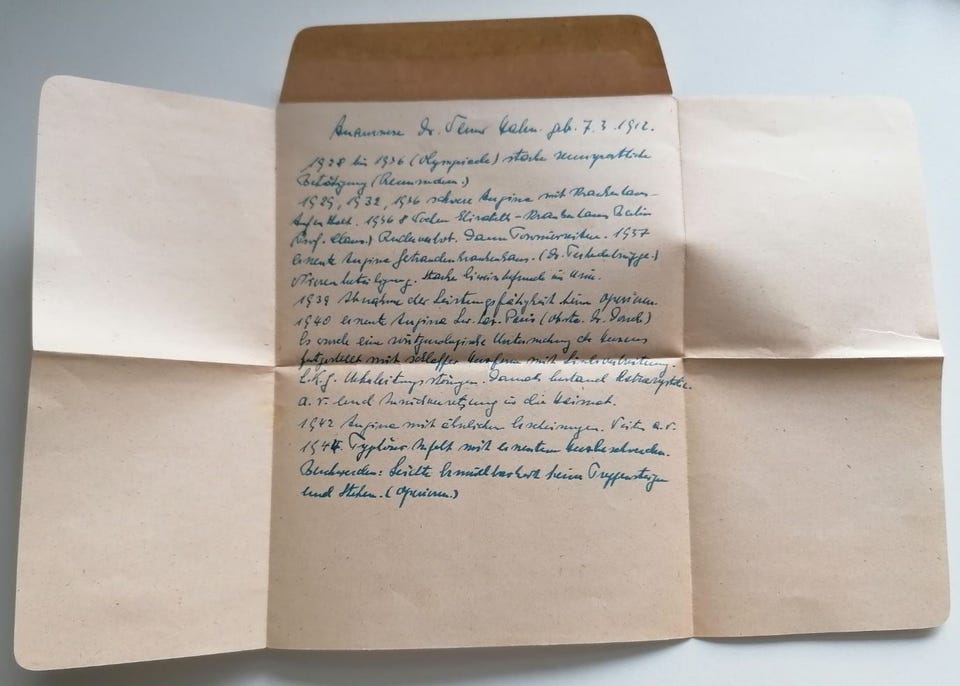 Anamnese Dr. Hahn. geb. 7.3.1912.
1928 bis 1936 (Olympiade) starke rennsportliche
Betätigung (Rennrudern.)
1929, 1932, 1936 schwere Angina mit Krankenhaus-
Aufenthalt. 1936 8 Wochen Elisabeth-Krankenhaus Berlin
Prof. Ruderverbot. Dann Turnierreiten. 1937
erneute Angina Gertraudenkrankenhaus. (Dr.
Nierenbeteiligung. Starke Eiweissbefunde im Urin.
1939 Abnahme der Leistungsfähigkeit beim Operieren.
1940 erneute Angina Paris (
Es wurde eine röntgenologische Untersuchung des Herzens
festgestellt mit schlaffer Herzform mit Linksverbreitung.
E.K.G. Damals bestand Extrasystolie.
a.v. und in die Heimat.
1942 Angina mit ähnlichen Erscheinungen. Weiter a.v.
1944 Typhöser Infekt mit erneuten Herzbeschwerden.
Beschwerden: Leichte Ermüdbarkeit beim Treppensteigen
und Stehen. (Operieren.)